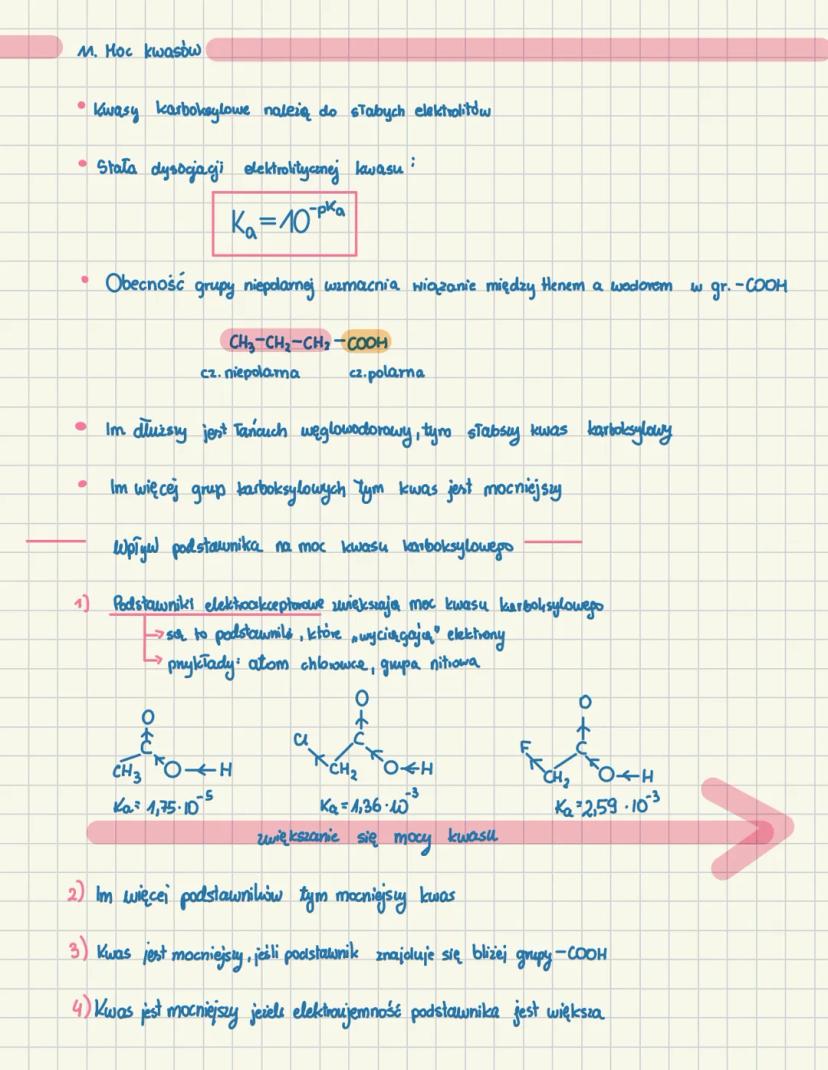 11. Moc kwasów
• Kwasy karboksylowe należą do słabych elektrolitów
• Stała dysocjacji elektrolitycznej kwasu:
Ka=10^-pKa
• Obecność grupy niepolarnej wzmacnia wiązanie między tlenem a wodorem w gr. -COOH
CH3-CH2-CH2-COOH
cz. niepolarna cz. polarna
• Im dłuższy jest łańcuch węglowodorowy, tym słabszy kwas karboksylowy
• Im więcej grup karboksylowych tym kwas jest mocniejszy
Wpływ podstawnika na moc kwasu karboksylowego
1) Podstawniki elektroakceptorowe zwiększają moc kwasu karboksylowego
są to podstawniki, które „wyciągają" elektrony
przykłady: atom chlorowca, grupa nitrowa
O O O
C Cl C F C
CH3 O H CH2 O H CH2 O H
Ka = 1,75·10^-5 Ka = 1,36·10^-3 Ka = 2,59·10^-3
zwiększanie się mocy kwasu
2) Im więcej podstawników tym mocniejszy kwas
3) Kwas jest mocniejszy, jeśli podstawnik znajduje się bliżej grupy -COOH
4) Kwas jest mocniejszy jeżeli elektroujemność podstawnika jest większa